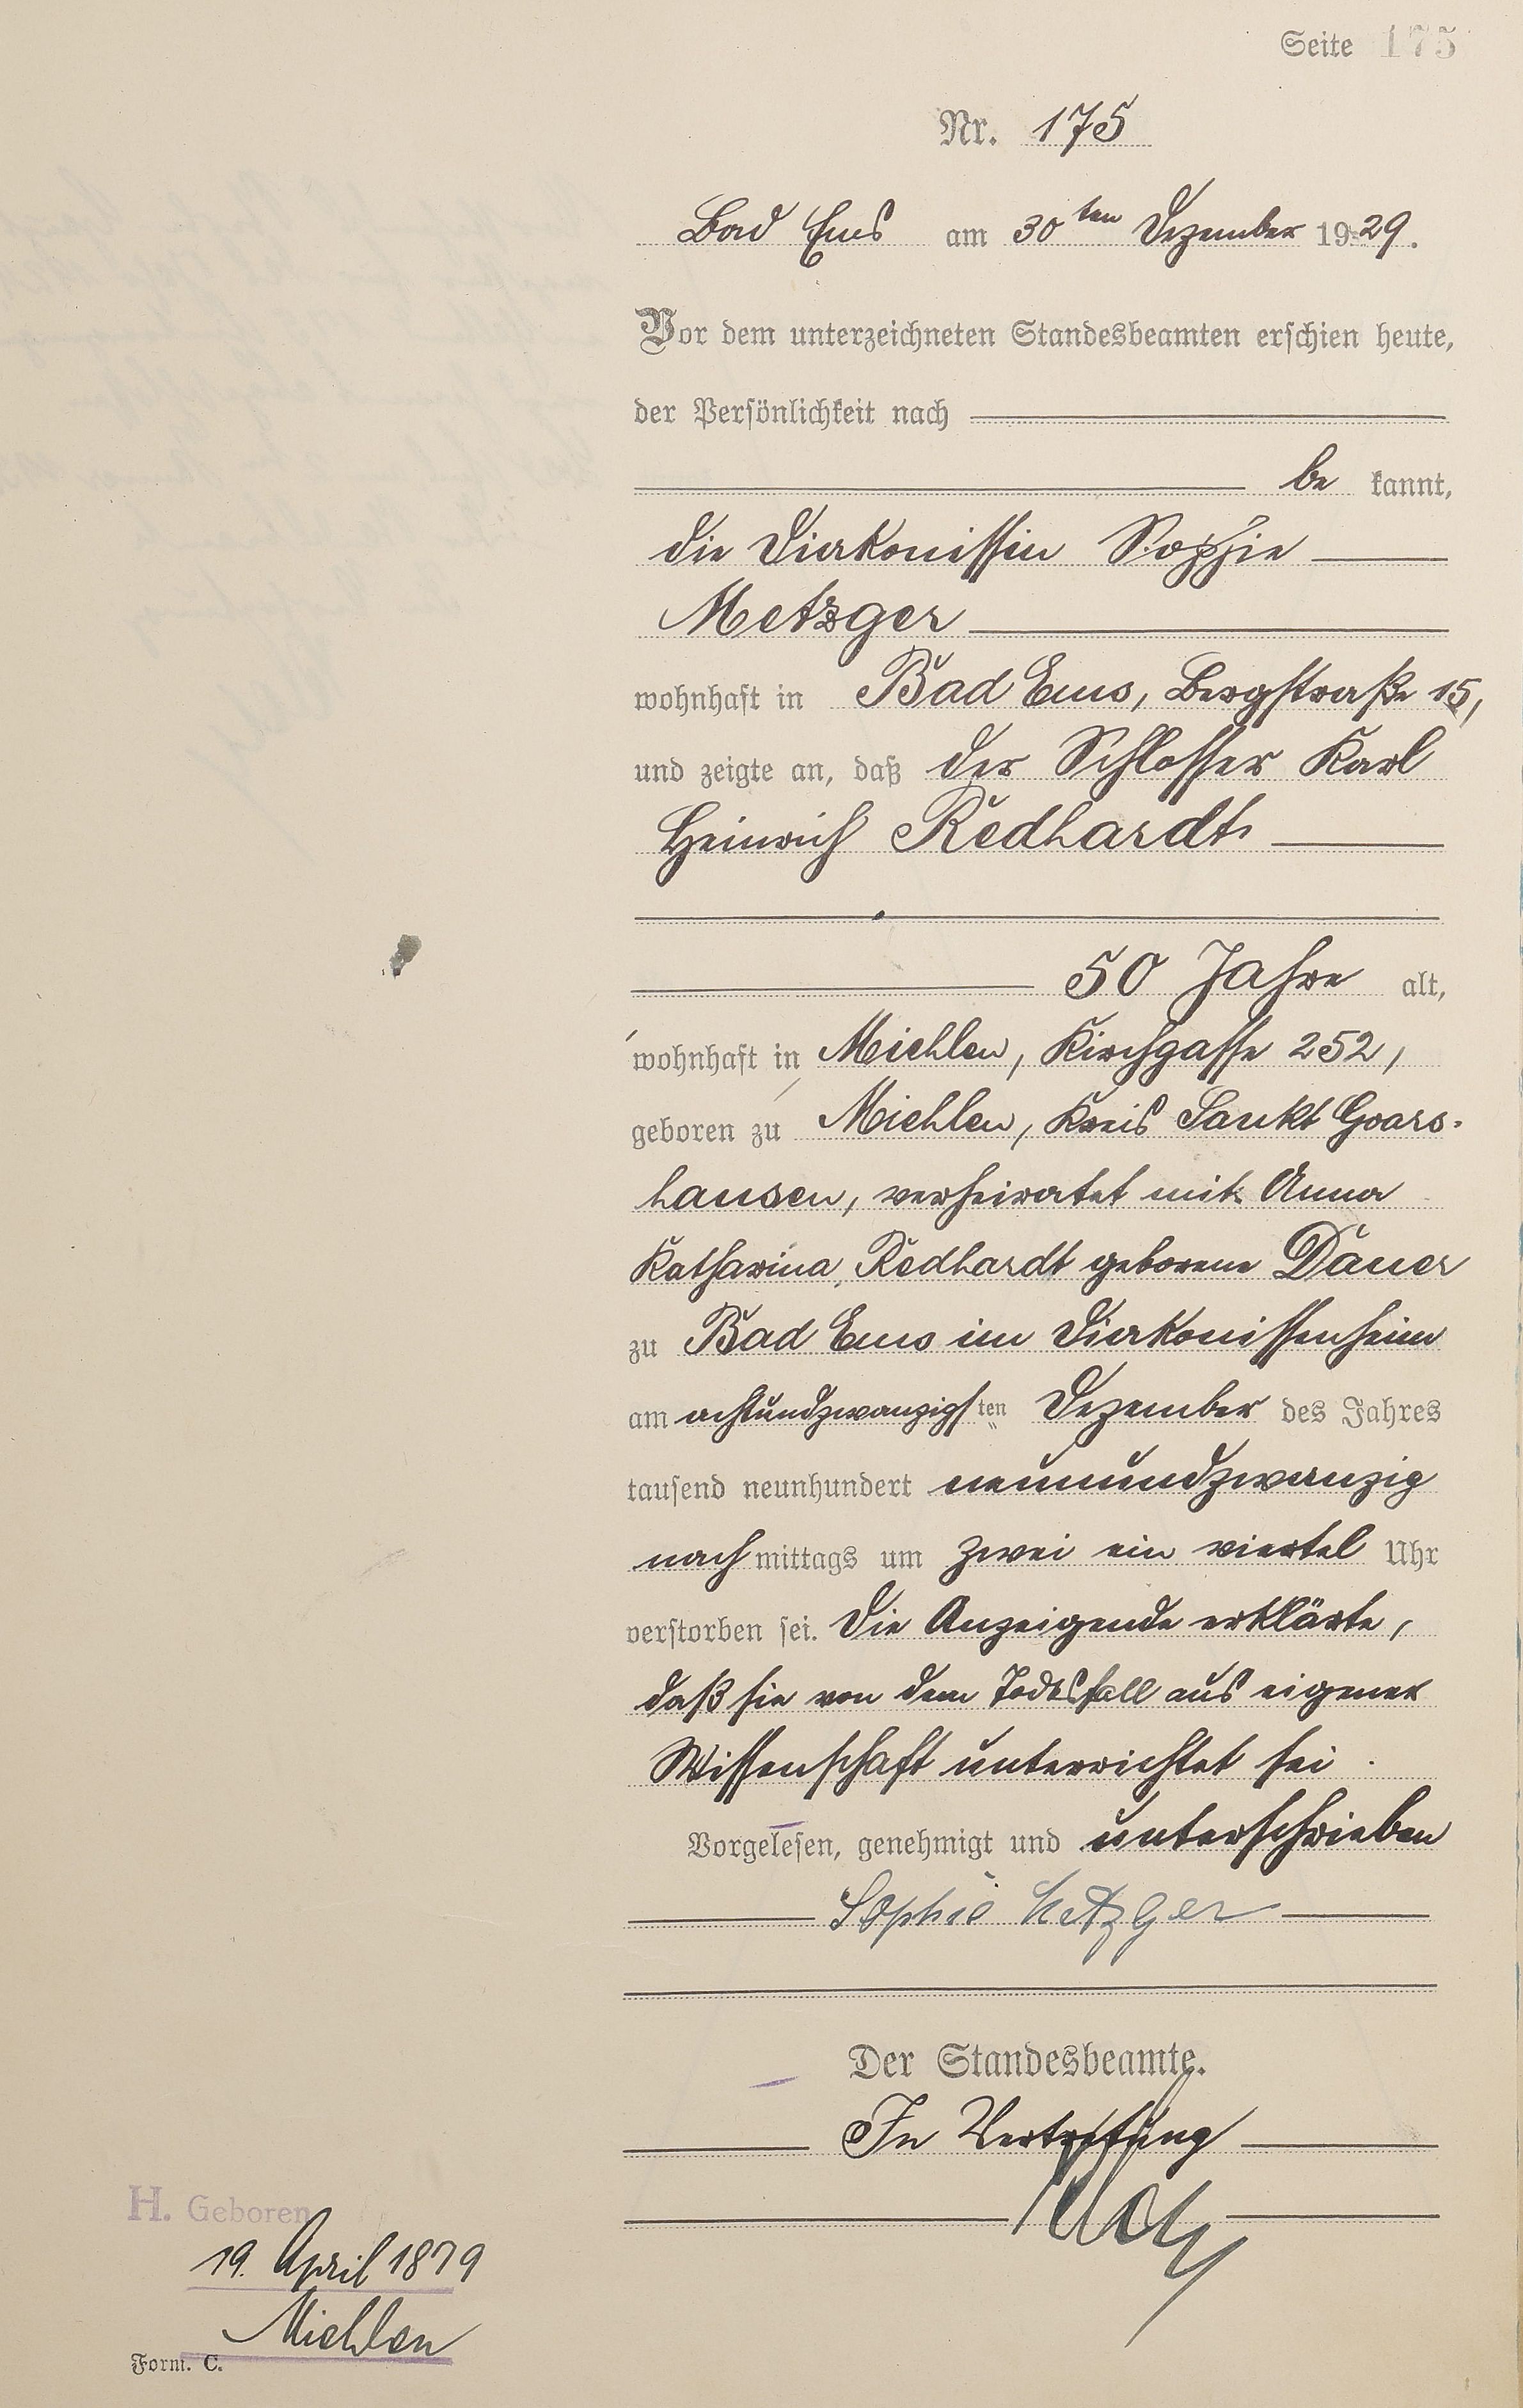 Seite 175
Nr. 175
Bad Ems am 30ten Dezember 1929.
Vor dem unterzeichneten Standesbeamten erschien heute,
der Persönlichkeit nach
be kannt,
die Diakonissin Sophie
Metzger
wohnhaft in Bad Ems, Bergstraße 15,
und zeigte an, daß der Schlosser Karl
Heinrich Redhardt
50 Jahre alt,
wohnhaft in Miehlen, Kirchgasse 252,
geboren zu Miehlen, Kreis Sankt Goars-
hausen, verheiratet mit Anna
Katharina Redhardt geborene Dauer
zu Bad Ems im Diakonissenheim
am achtundzwanzigsten Dezember des Jahres
tausend neunhundert neunundzwanzig
nachmittags um zwei ein viertel Uhr
verstorben sei. Die Anzeigende erklärte,
daß sie von dem Todesfall aus eigener
Wissenschaft unterrichtet sei.
Vorgelesen, genehmigt und unterschrieben
Sophie Metzger
Der Standesbeamte.
In Vertretung
H. Geboren
19. April 1879
Miehlen
Form. C.